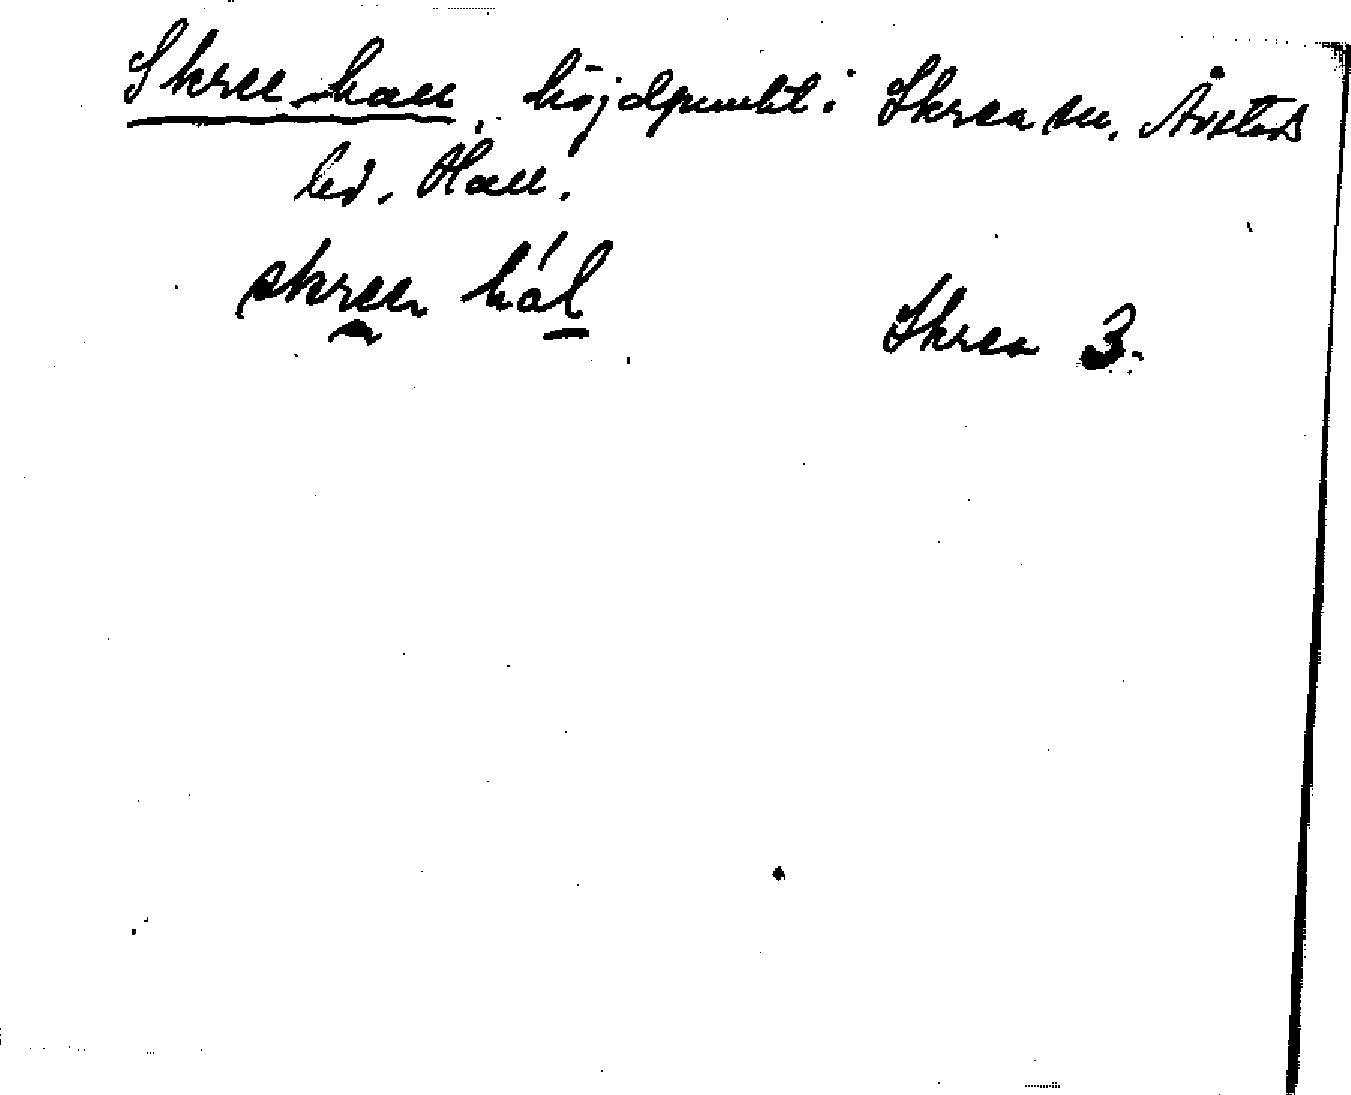 Skree hall, höjdpunkt i Skrea sn, Årstads
hd. Hall.
skree hál
Skrea 3.